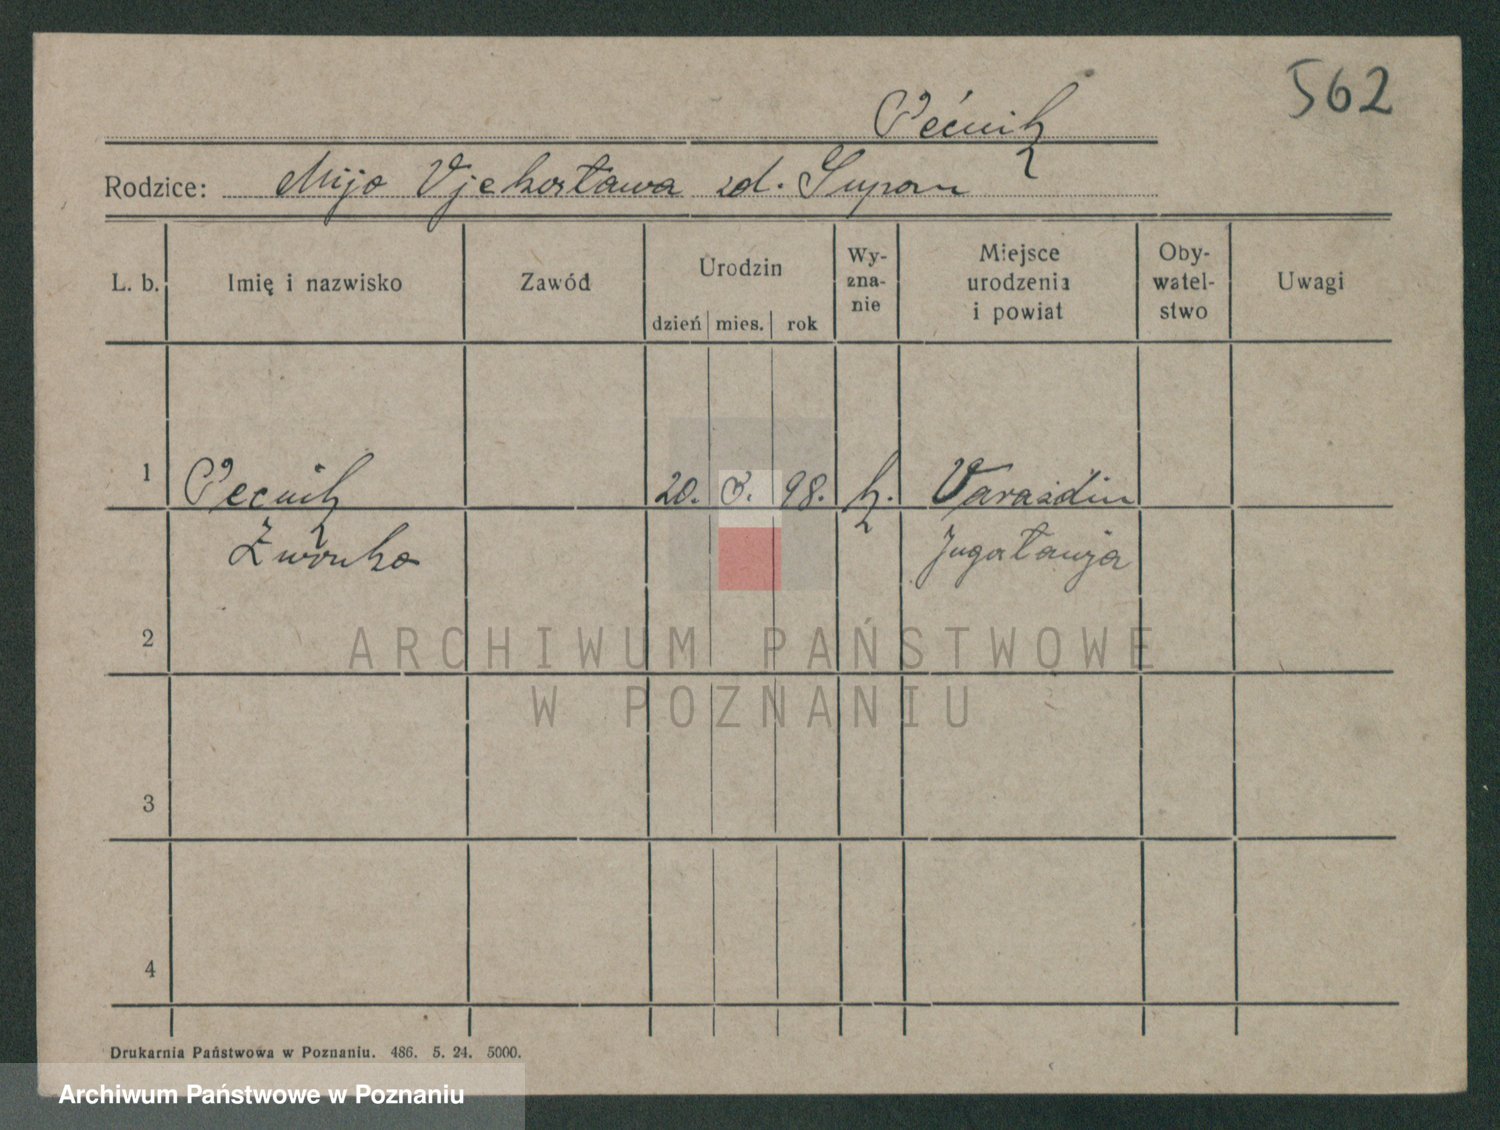 562
Pećnik
Rodzice: Mijo Vjekosława zd. Supan
L. b. Imię i nazwisko Zawód Urodzin Wy-zna-nie Miejsce urodzenia i powiat Oby-watel-stwo Uwagi
dzień mies. rok
1 Pecnik 20. 3. 98. k. Varaždin
Zwonko Jugosławja
2
3
4
ARCHIWUM PAŃSTWOWE
W POZNANIU
Drukarnia Państwowa w Poznaniu. 486. 5. 24. 5000.
Archiwum Państwowe w Poznaniu